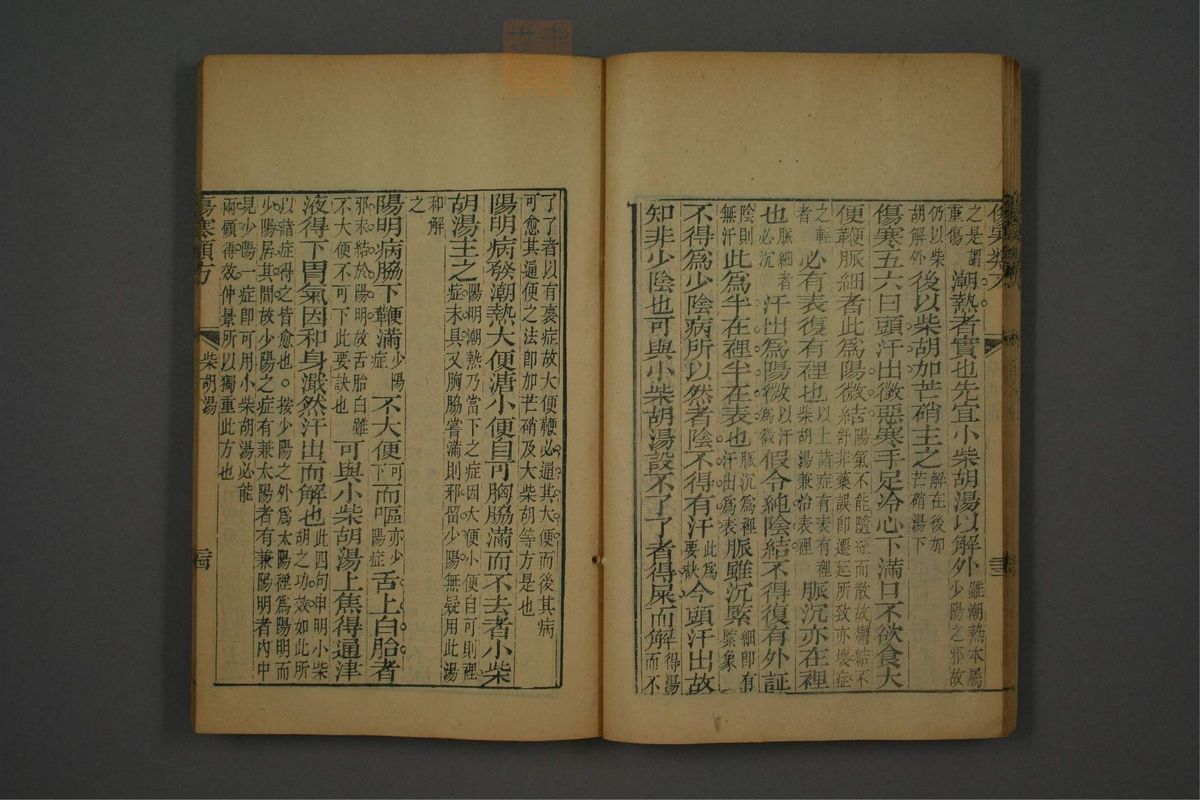 之是謂
重傷
潮熱者實也先宜小柴胡湯以解外
雖潮熱本屬
少陽之邪故
仍以柴
胡解外
後以柴胡加芒硝主之
解在後加
芒硝湯下
傷寒五六日頭汗出微惡寒手足冷心下滿口不欲食大
便鞕脈細者此為陽微結
陽氣不能隨經而散故鬱結不
舒非藥誤即遷延所致亦壞症
之輕
者
必有表復有裡也
以上諸症有表有裡
柴胡湯兼治表裡
脈沉亦在裡
也
脈細者
必沉
汗出為陽微
以汗
為微
假令純陰結不得復有外証
陰則
無汗
此為半在裡半在表也
脈沉為裡
汗出為表
脈雖沉緊
細即有
緊象
不得為少陰病所以然者陰不得有汗
此為
要訣
今頭汗出故
知非少陰也可與小柴胡湯設不了了者得屎而解
得湯
而不
了了者以有裏症故大便鞕必通其大便而後其病
可愈其通便之法即加芒硝及大柴胡等方是也
陽明病發潮熱大便溏小便自可胸脇滿而不去者小柴
胡湯主之
陽明潮熱乃當下之症因大便小便自可則裡
症未具又胸脇嘗滿則邪留少陽無疑用此湯
和解
之
陽明病脇下鞕滿
少陽
症
不大便
可
下
而嘔
亦少
陽症
舌上白胎者
邪未結於陽明故舌胎白雖
不大便不可下此要訣也
可與小柴胡湯上焦得通津
液得下胃氣因和身濈然汗出而解也
此四句申明小柴
胡之功效如此所
以諸症得之皆愈也。按少陽之外為太陽裡為陽明而
少陽居其間故少陽之症有兼太陽者有兼陽明者內中
見少陽一症即可用小柴胡湯必能
兩顧得效仲景所以獨重此方也
傷寒類方
柴胡湯